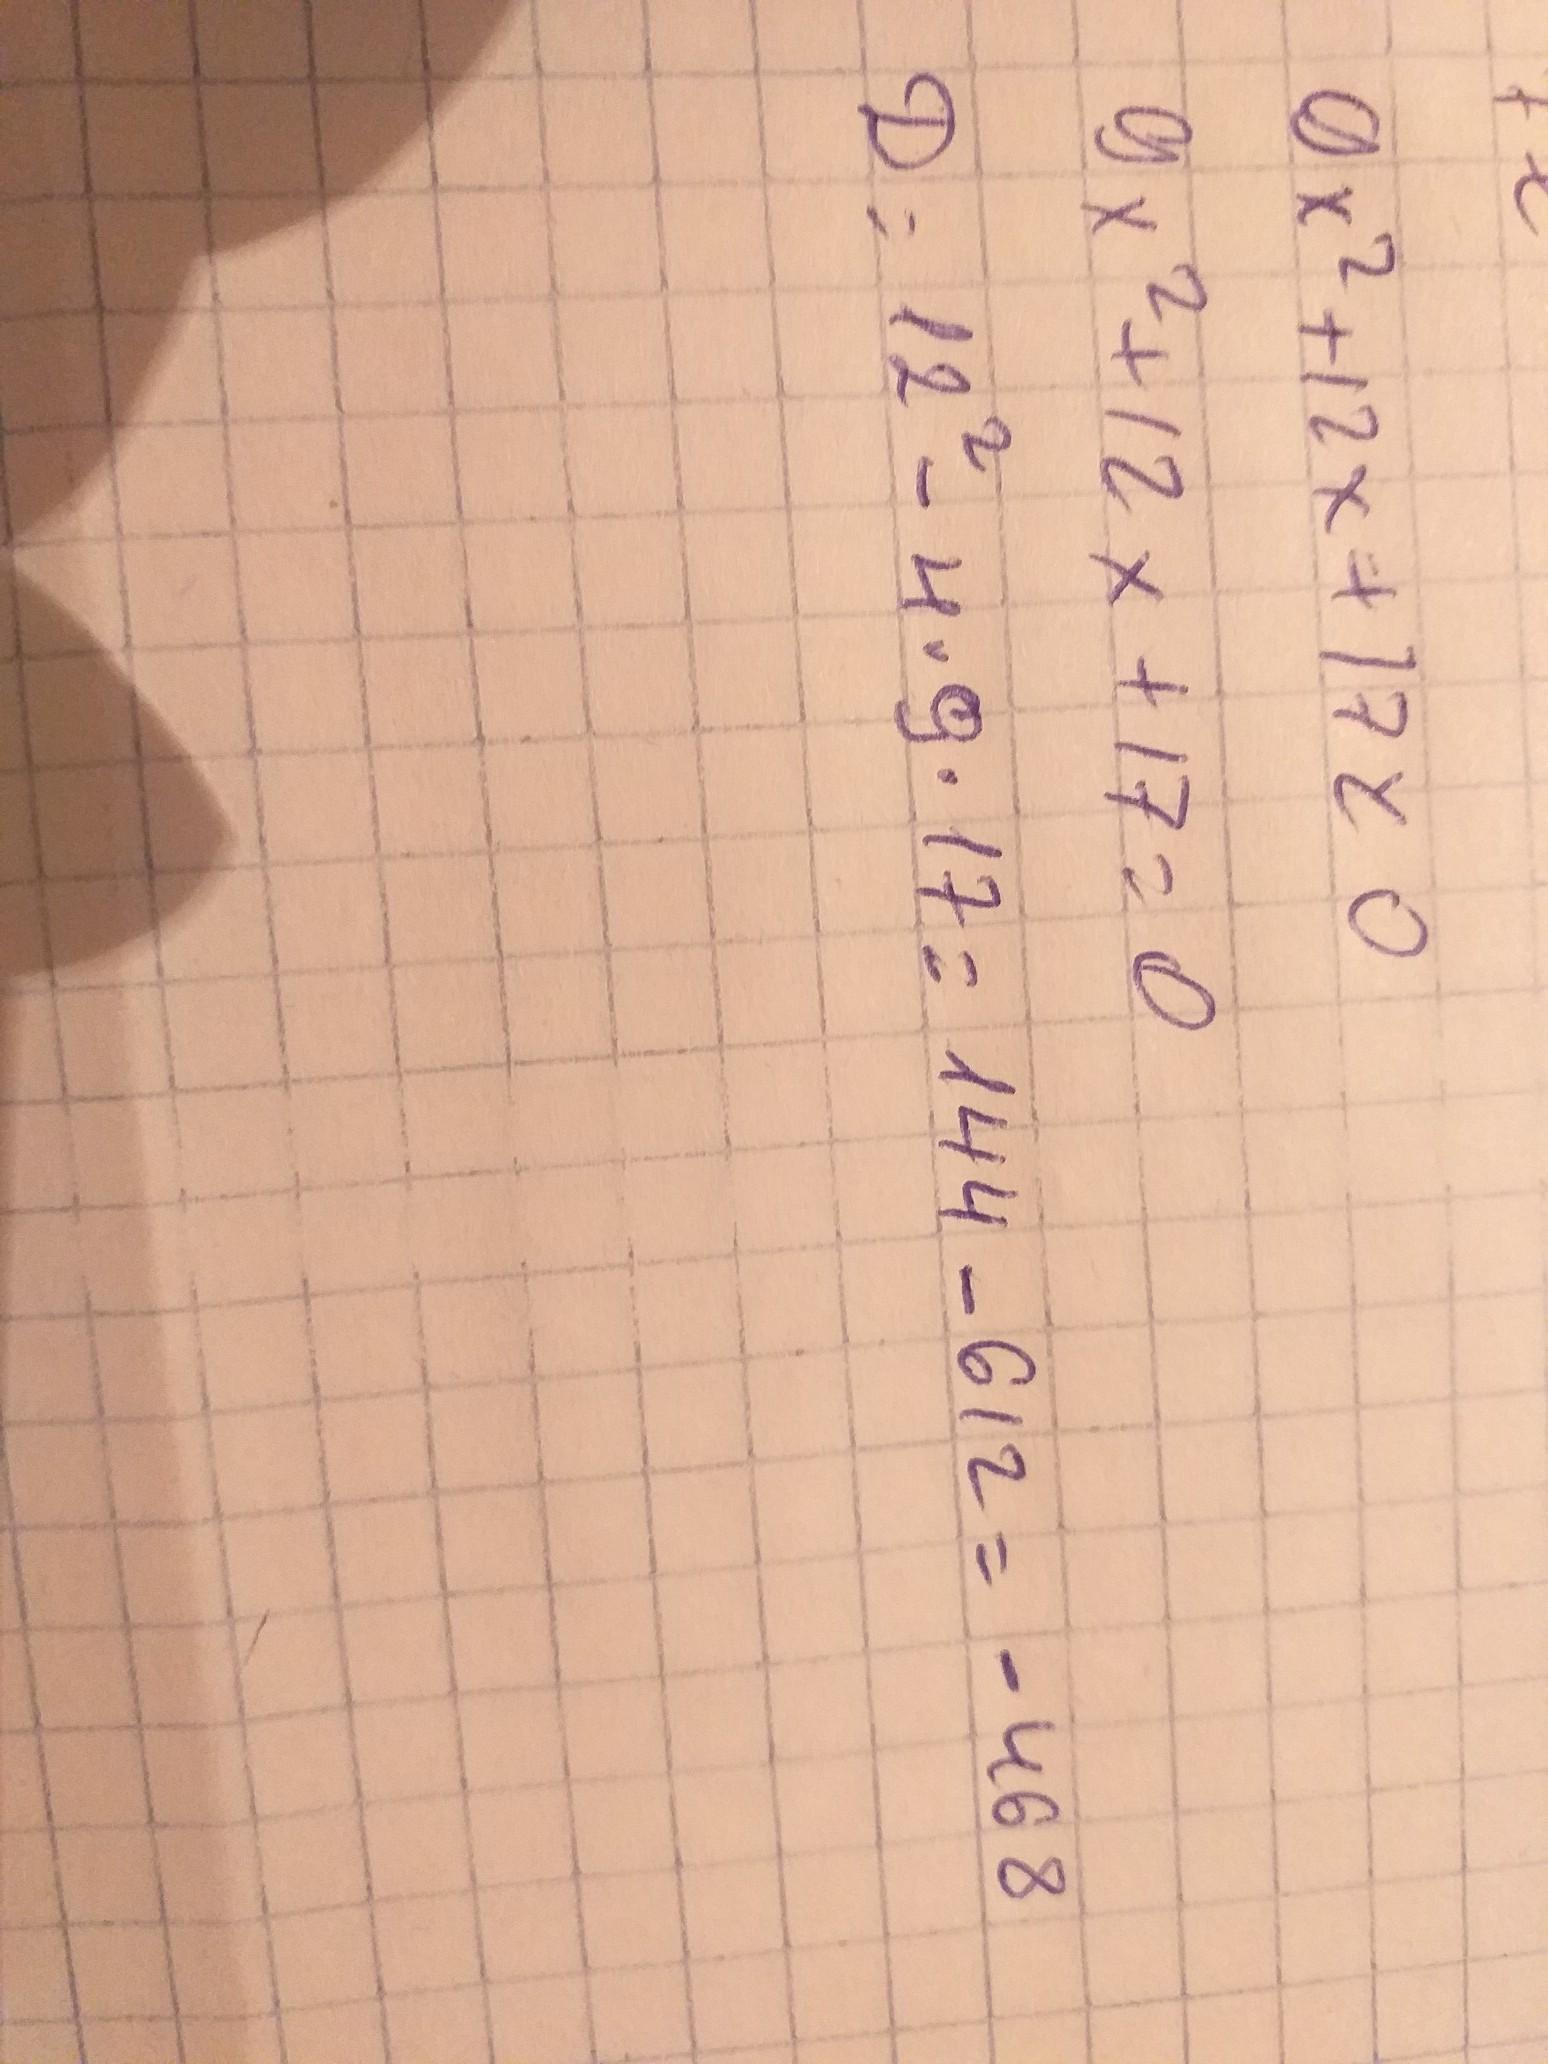 7x
9x²+12x+17<0
9x²+12x+17=0
D=12²-4·9·17=144-612=-468